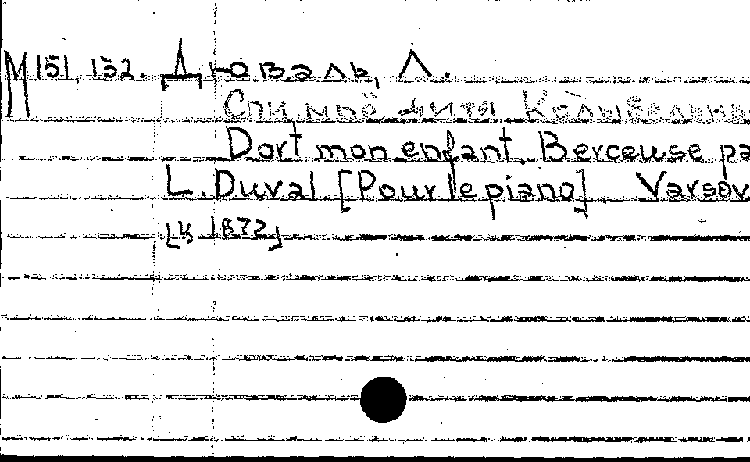 M 151, 152. Дюваль, Л.
Спи моё дитя Колыбельна
Dort mon enfant. Berceuse pa
L. Duval [Pour le piano] Varsov
[ 1872]